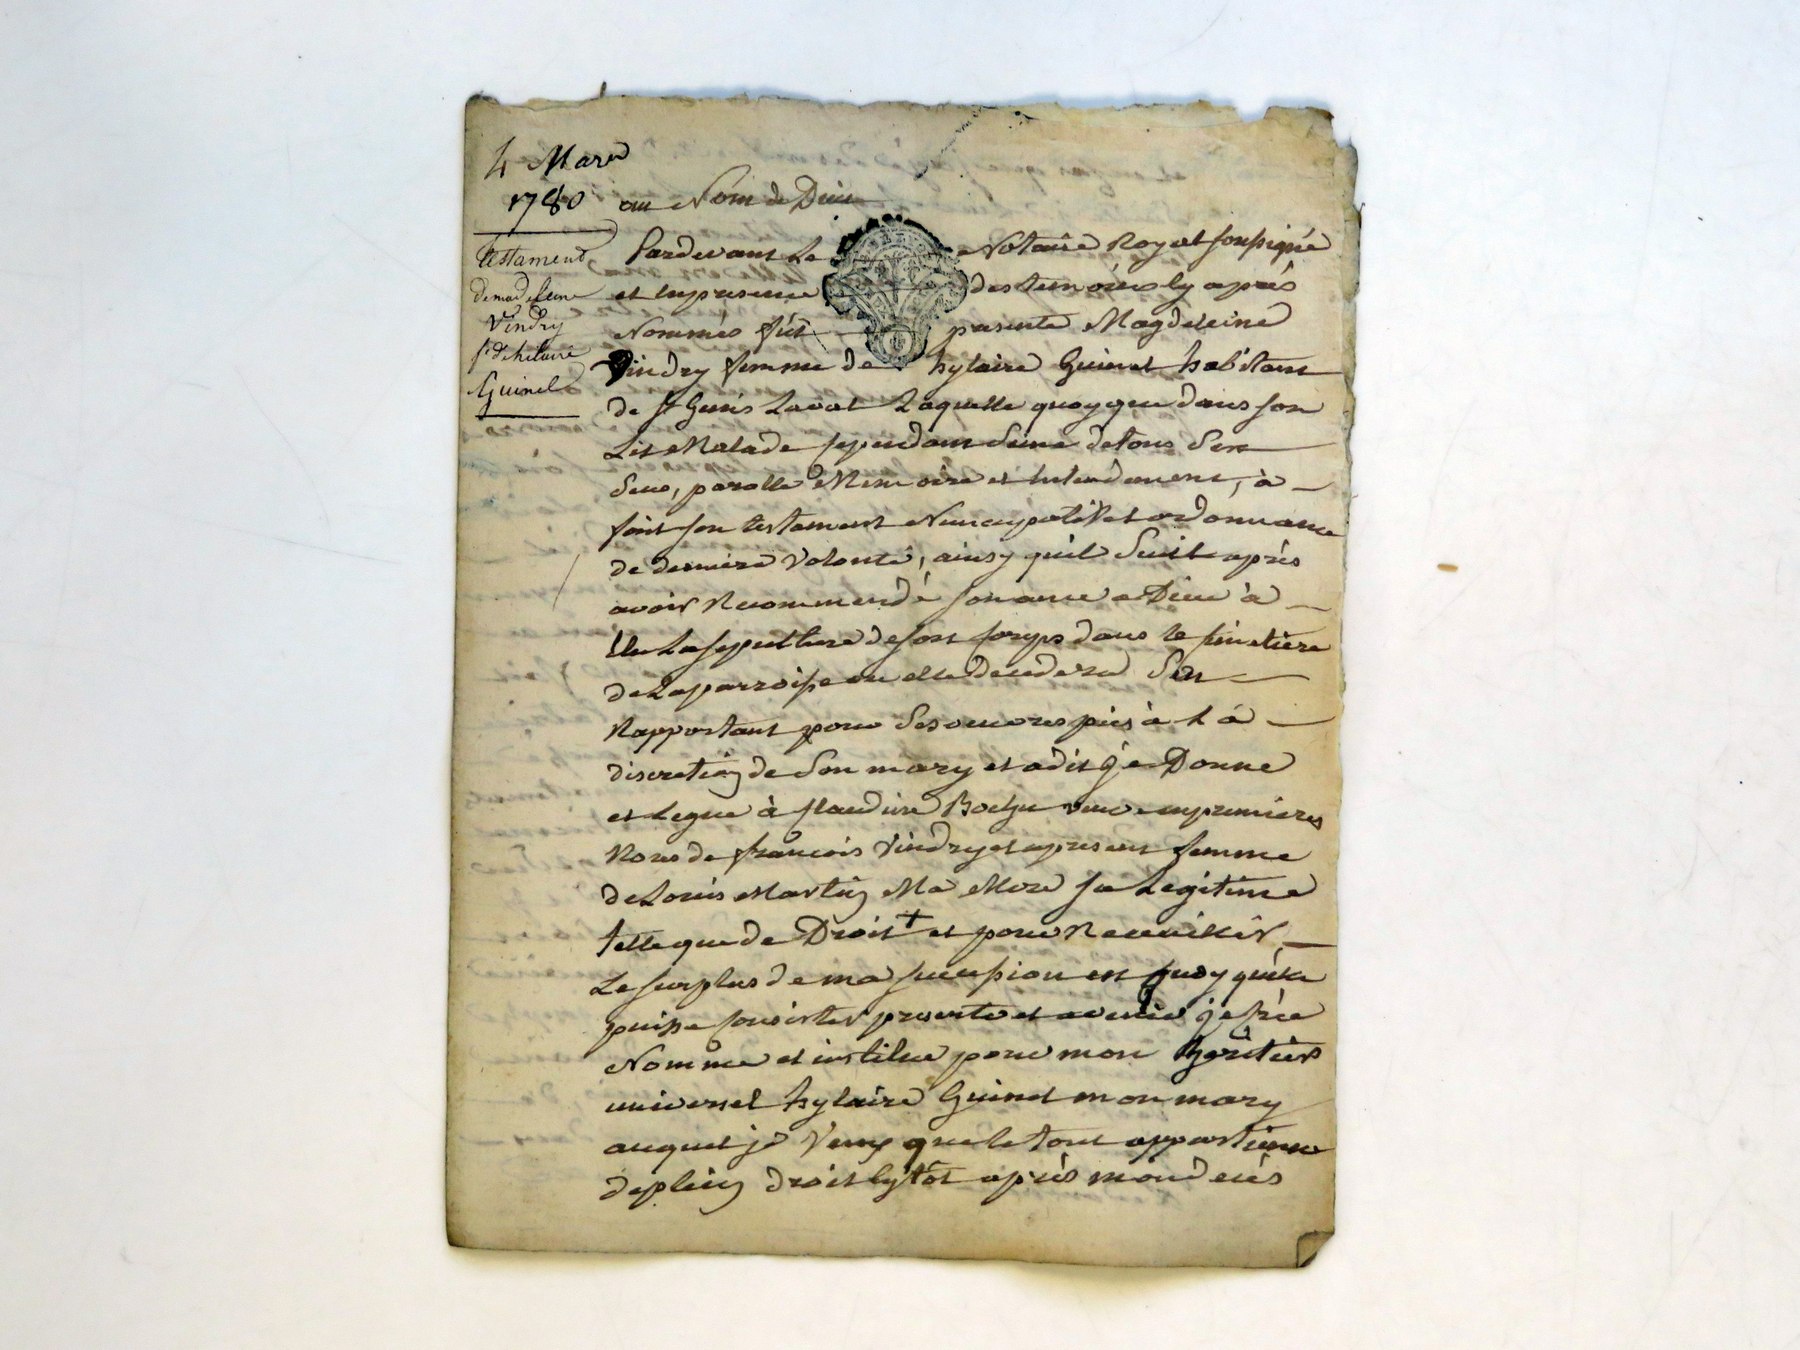 4 Mars
1780
testament
de madeleine
Vindry
f.e d'hilaire
Guinet
au Nom de Dieu
Pardevant Le Notaire Royal soussigné
et en presence des temoins cy aprés
Nommés fut presente Magdeleine
Vindry femme de hylaire Guinet habitant
de St Genis Laval Laquelle quoyque dans son
Lit Malade sependant Seine de tous Ses
Sens, parolle Memoire et entendement, à
fait son testament Nuncupatif et ordonnance
de derniere Volonté, ainsy quil Suit aprés
avoir Recommendé son ame a Dieu à
Elu La sepulture de son corps dans le simetiere
de La parroisse ou elle decedera Sen
Rapportant pour Ses oeuvres pies à L à
discretion de Son mary et a dit Je Donne
et Legue à Claudine veuve en premieres
Noces de françois Vindry et a present femme
de Louis Martin Ma Mere Sa Legitime
telle que de Droit + et pour Recueillir
Le surplus de ma succession en quoy quelle
puisse consister presente et avenir je crée
Nomme et institue pour mon heritier
universel hylaire Guinet mon mary
auquel je Veux que le tout appartienne
de plein droit sytôt aprés mon decés